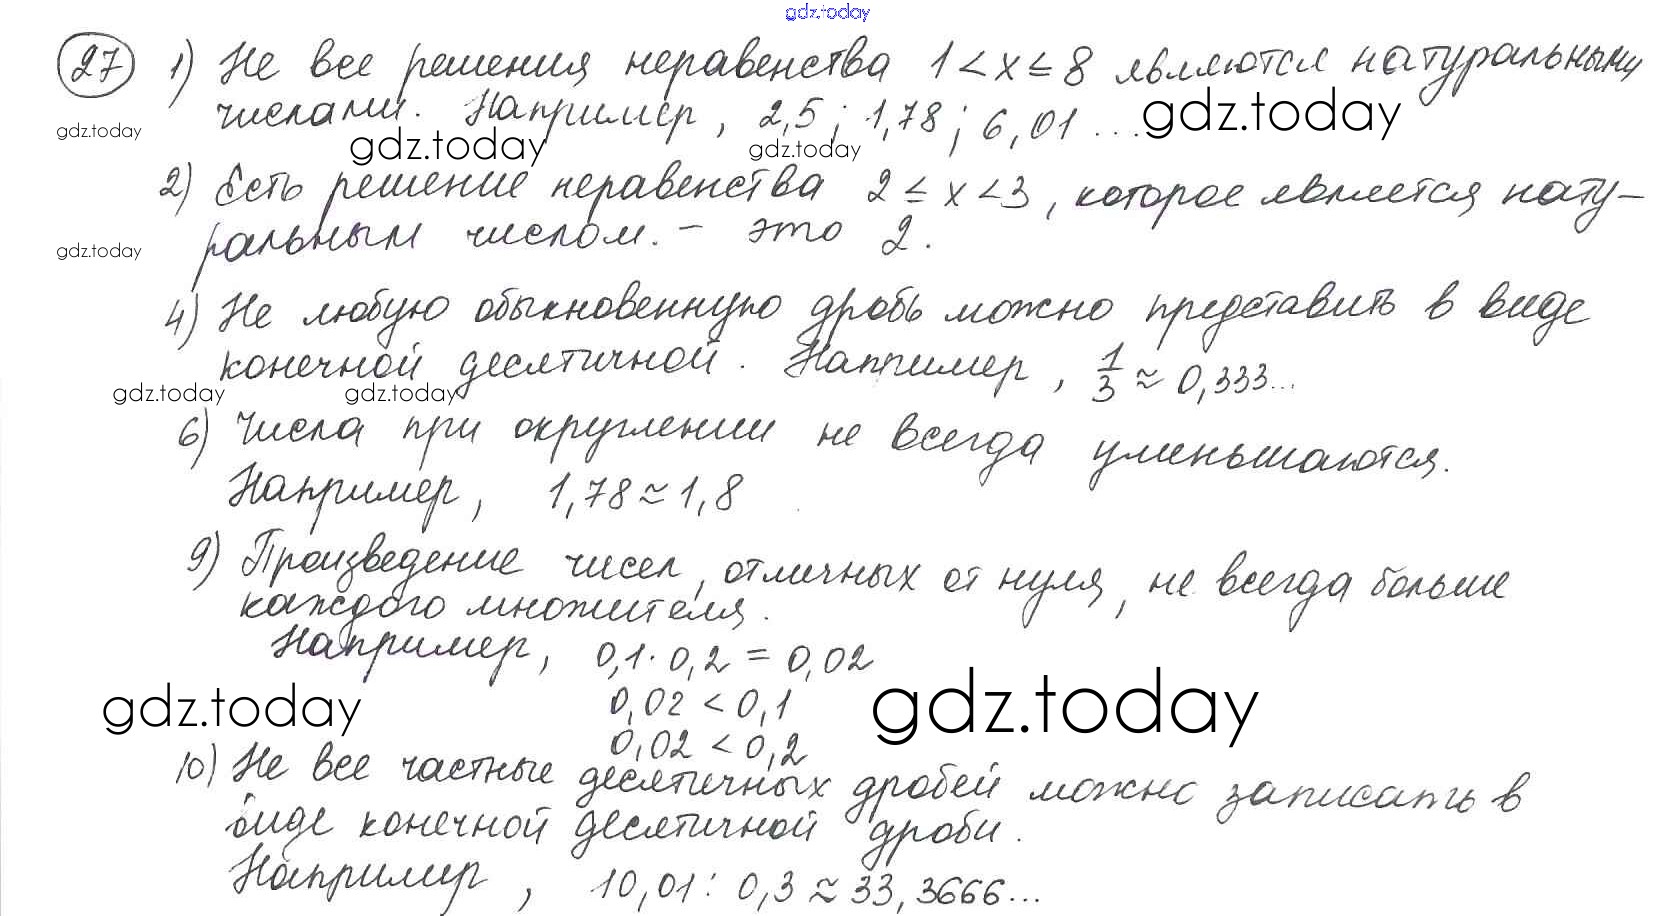 gdz.today
27 1) Не все решения неравенства 1 < x ≤ 8 являются натуральными
числами. Например, 2,5; 1,78; 6,01 ... gdz.today
gdz.today gdz.today gdz.today
2) Есть решение неравенства 2 ≤ x < 3, которое является нату-
ральным числом. - это 2.
gdz.today
4) Не любую обыкновенную дробь можно представить в виде
конечной десятичной. Например, 1/3 ≈ 0,333...
gdz.today gdz.today
6) Числа при округлении не всегда уменьшаются.
Например, 1,78 ≈ 1,8
9) Произведение чисел, отличных от нуля, не всегда больше
каждого множителя.
Например, 0,1 · 0,2 = 0,02
gdz.today 0,02 < 0,1 gdz.today
0,02 < 0,2
10) Не все частные десятичных дробей можно записать в
виде конечной десятичной дроби.
Например, 10,01 : 0,3 ≈ 33,3666...